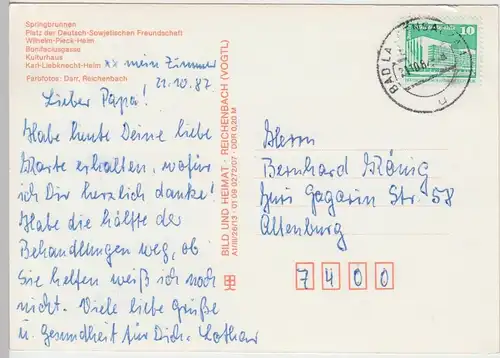 Springbrunnen
Platz der Deutsch-Sowjetischen Freundschaft
Wilhelm-Pieck-Heim
Bonifaciusgasse
Kulturhaus
Karl-Liebknecht-Heim xx mein Zimmer
Farbfotos: Darr, Reichenbach
21.10.87
Lieber Papa!
Habe heute Deine liebe
Karte erhalten, wofür
ich Dir herzlich danke!
Habe die hälfte der
Behandlungen weg, ob
Sie helfen weiß ich noch
nicht. Viele liebe grüße
u. Gesundheit für Dich. Lothar
BILD UND HEIMAT REICHENBACH (VOGTL)
01 09 0272/07 DDR 0,20 M
10
BAD LANGENSALZA
Herrn
Bernhard König
Juri Gagarin Str. 58
Altenburg
7400